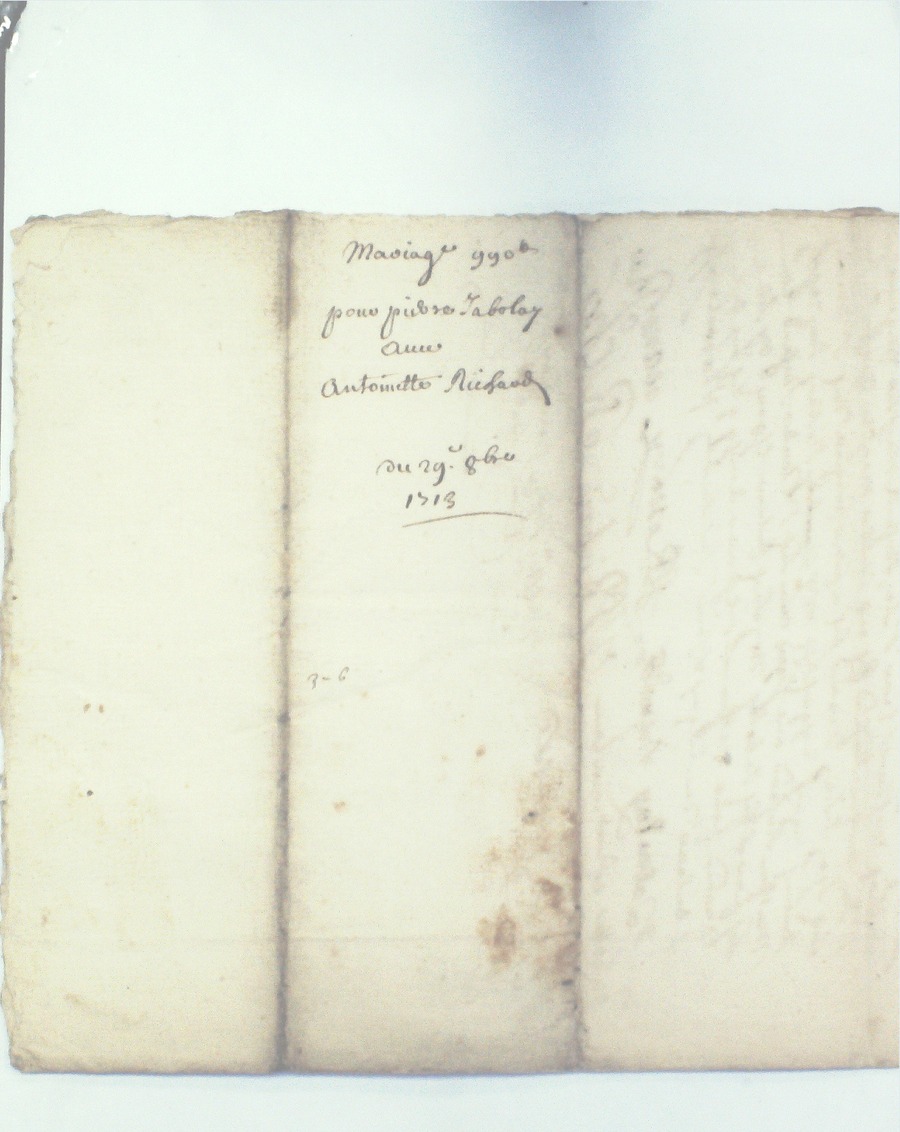 Mariage 990ᵗ
pour pierre Jabolay
avec
Antoinette Richard
du 29.ᵉ 8bre
1713
3-6